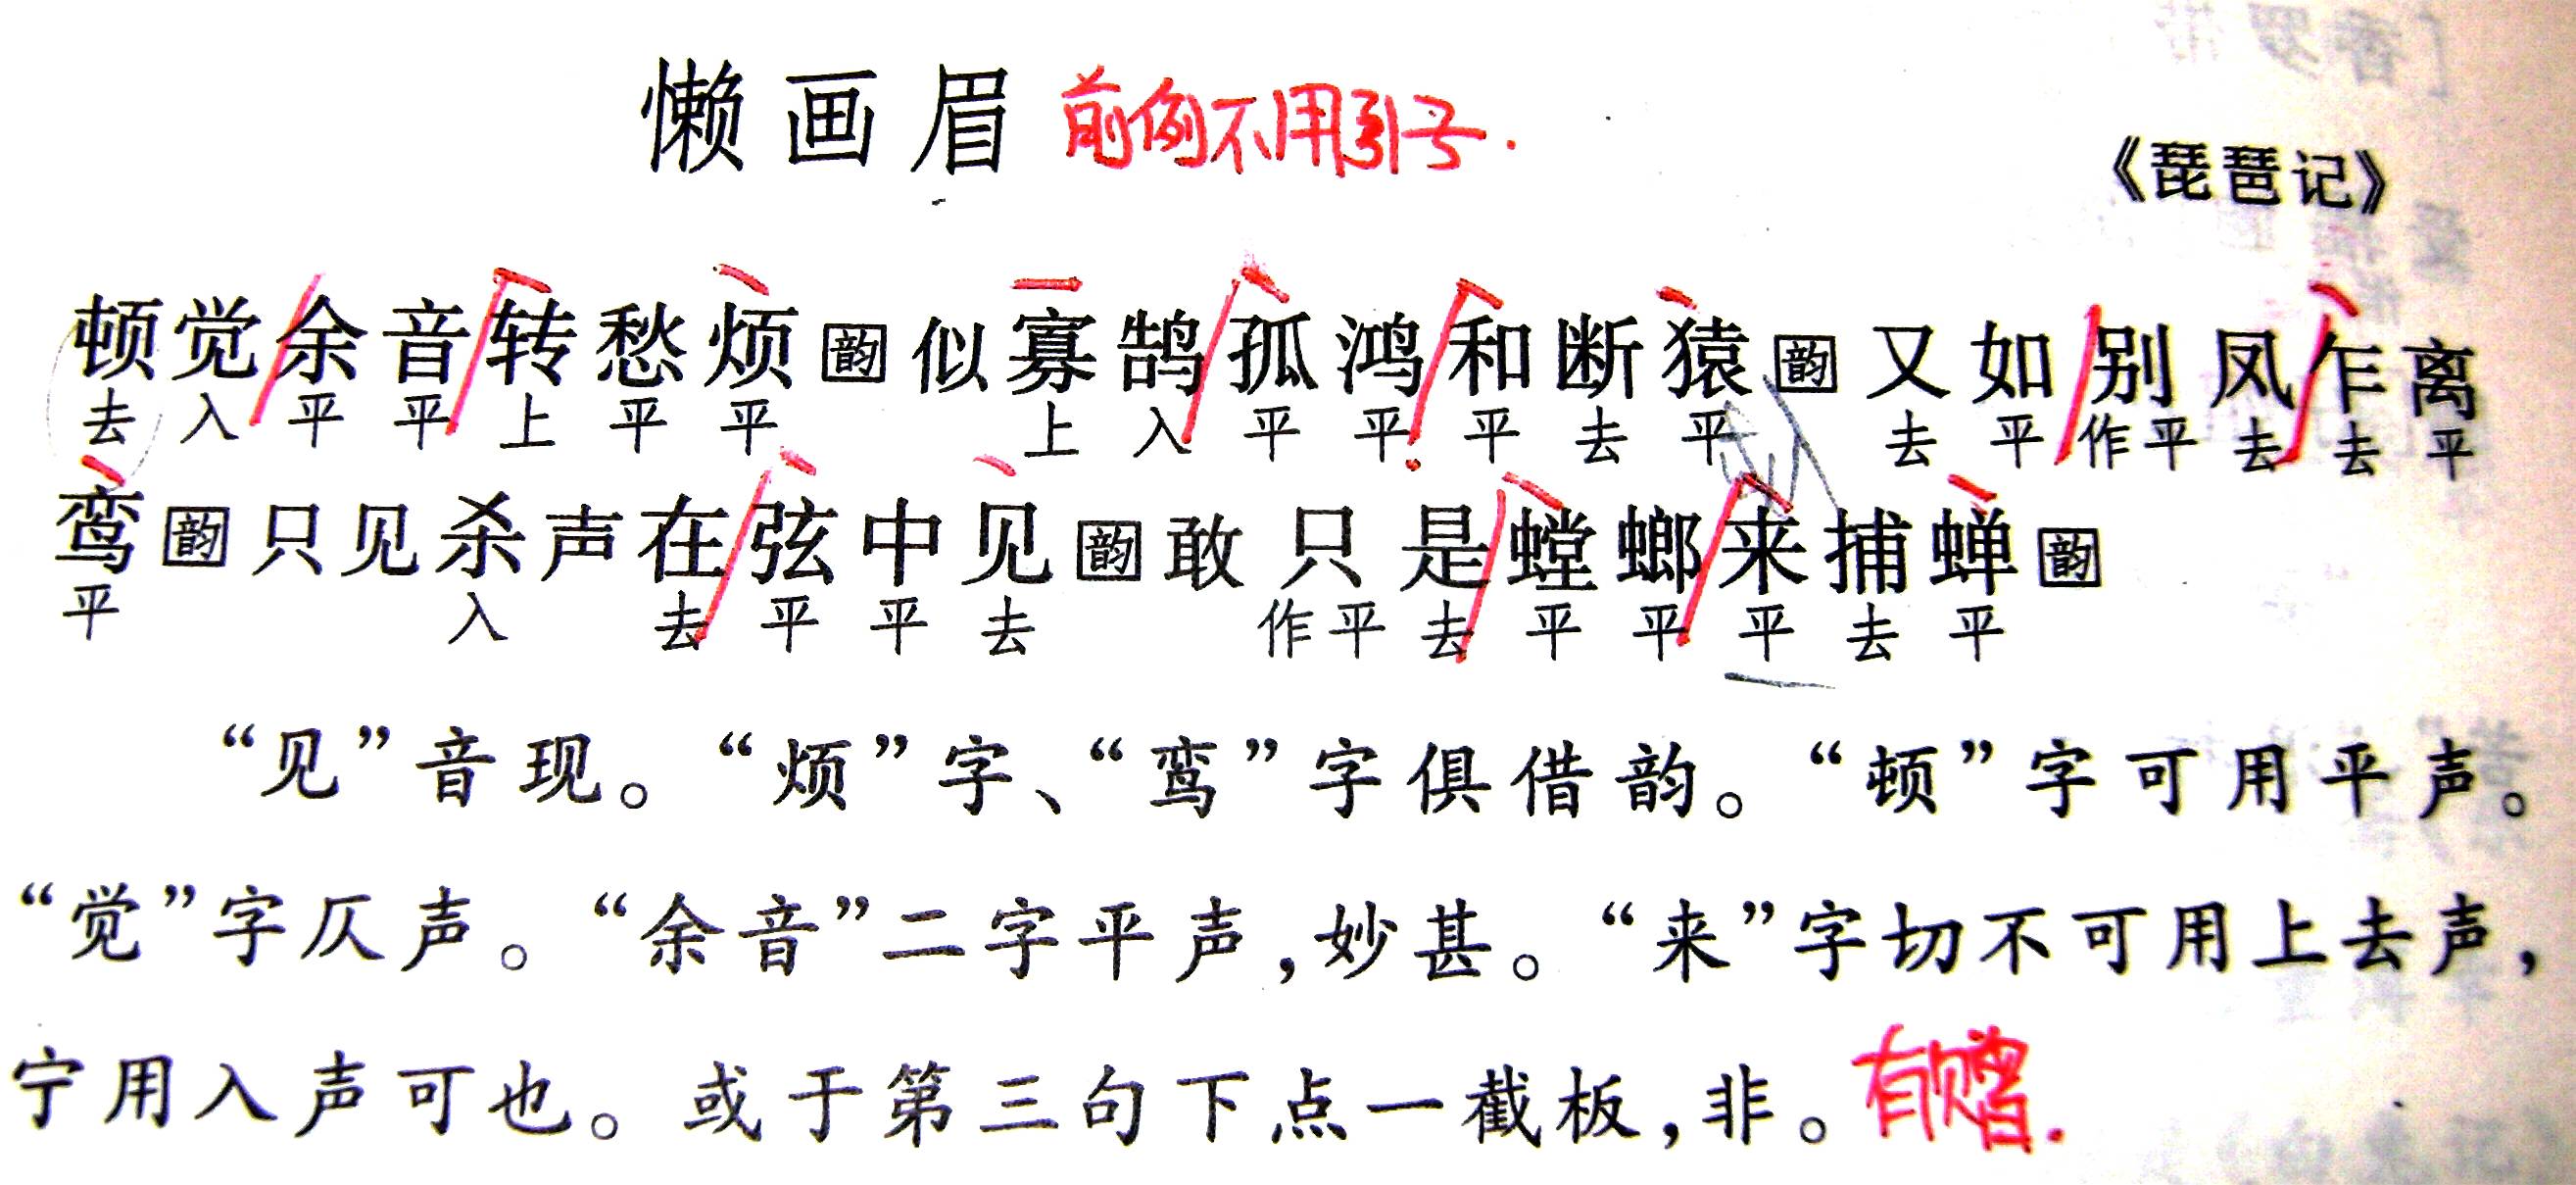 懒画眉 前例不用引子.
《琵琶记》
顿觉余音转愁烦韵似寡鹄孤鸿和断猿韵又如别凤乍离
去入平平上平平上入平平平去平去平作平去去平
鸾韵只见杀声在弦中见韵敢只是螳螂来捕蝉韵
平入去平平去作平去平平平去平
“见”音现。“烦”字、“鸾”字俱借韵。“顿”字可用平声。
“觉”字仄声。“余音”二字平声,妙甚。“来”字切不可用上去声,
宁用入声可也。或于第三句下点一截板,非。有赠.